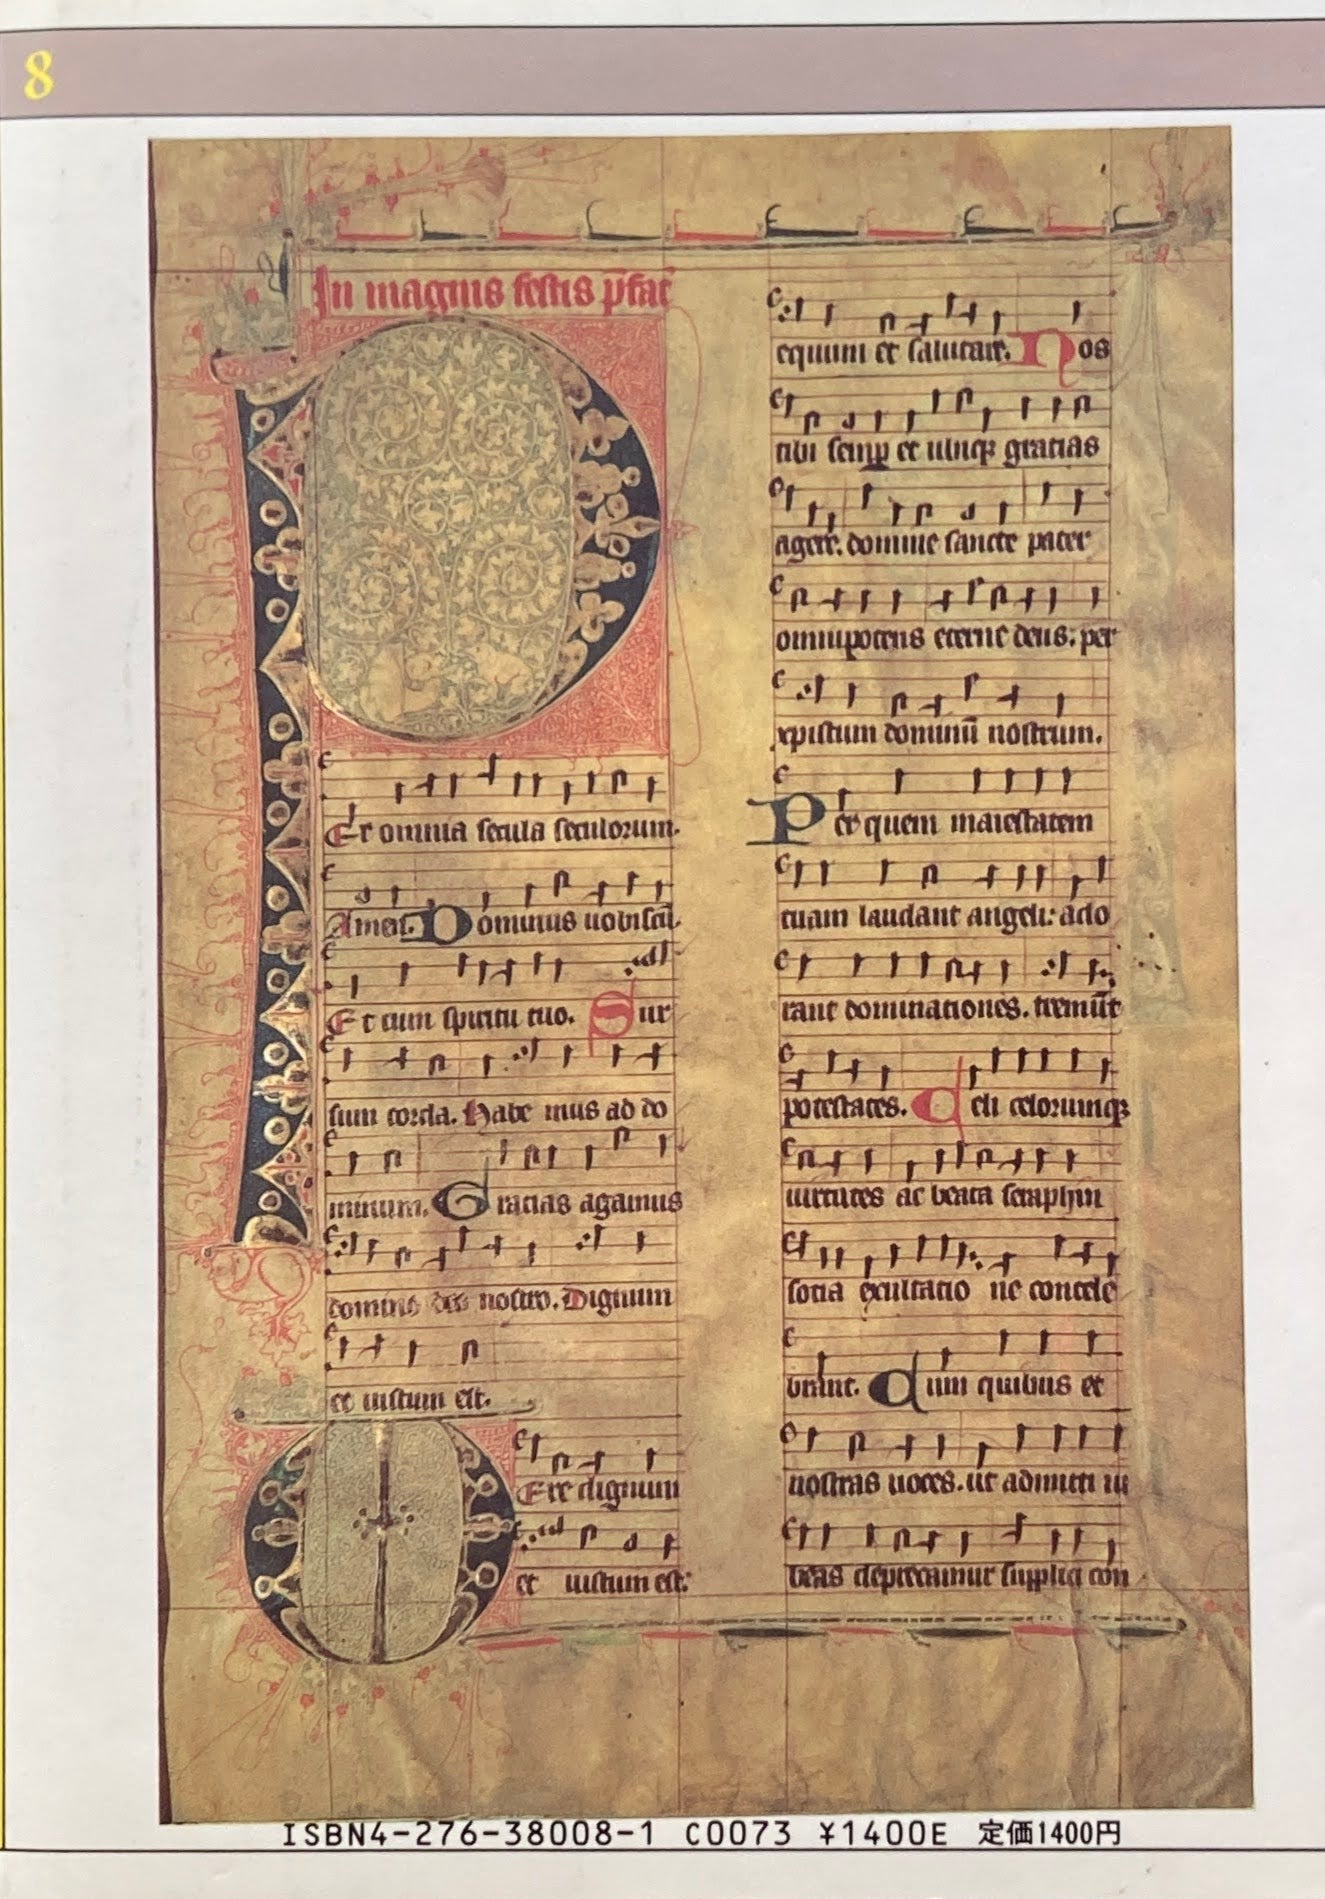 8
In magnis festis p̄fac̄
P
Er omnia secula seculorum.
Amen. Dominus uobiscū.
Et cum spiritu tuo. Sur
sum corda. Habe mus ad do
minum. Gracias agamus
domino deo nostro. Dignum
et iustum est.
Ere dignum
et iustum est:
equum et salutare. Nos
tibi semꝑ et ubiqꝫ gracias
agere. domine sancte pater
omnipotens eterne deus. per
xpistum dominū nostrum.
Per quem maiestatem
tuam laudant angeli: ado
rant dominationes. tremūt
potestates. Celi celorumqꝫ
uirtutes ac beata seraphin
socia exultatio ne concele
brant. Cum quibus et
nostras uoces. ut admitti iu
beas deprecamur supplici con
ISBN4-276-38008-1 C0073 ¥1400E 定価1400円